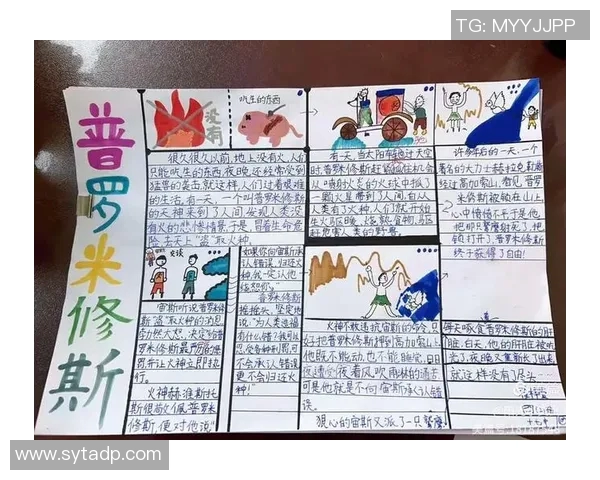 TG: MYYJJPP
普罗米修斯
没有
吃生的东西
很久很久以前,地上没有火,人们
只能吃生的东西,夜晚还经常受到
猛兽的袭击,就这样,人们过着艰难
的生活。有一天,一个叫普罗米修斯
的天神来到了人间,发现人类没
有火的悲惨情景,于是,冒着生命危
险,去天上“盗”取火种。
有一天,当太阳车跑过天空
时,普罗米修斯
一颗火星带到了人间。自从
人类有了火种,人们就开始
生火取暖、烧熟食物、驱
赶危害人类的野兽。
许多年后的一天,一个
著名的大力士赫拉克
经过高加索山,看见普罗
米修斯被锁在山上,
心中愤愤不平
终于获得了自由!
交谈
宙斯听说普罗米
修斯“盗”取火种的消息,
勃然大怒,决定给普
罗米修斯最严厉的惩
罚,并让火神立即执
行。
火神赫淮斯托
斯很敬佩普罗米
修斯,便对他说:“
如果你向宙斯承
认错误,归还火
种,我一定让他
饶恕你。”
普罗米修斯
摇摇头,坚定地
说:“为人类造福,
有什么错?我可以忍
受各种刑罚,可
不会承认错误,
更不会归还火
种!”
火神不敢违抗宙斯的命令,只
好把普罗米修斯押到高加索山上,
他既不能动,也不能睡觉,日日
夜夜遭受着风吹雨淋的痛苦。
可是他就是不向宙斯承认错
误。
狠心的宙斯又派了一只鹫鹰
每天啄食普罗米修斯的肝
脏。白天,他的肝脏被吃
光,夜晚又重新长了出来,
就这样没有了尽头
www.sytadp.com